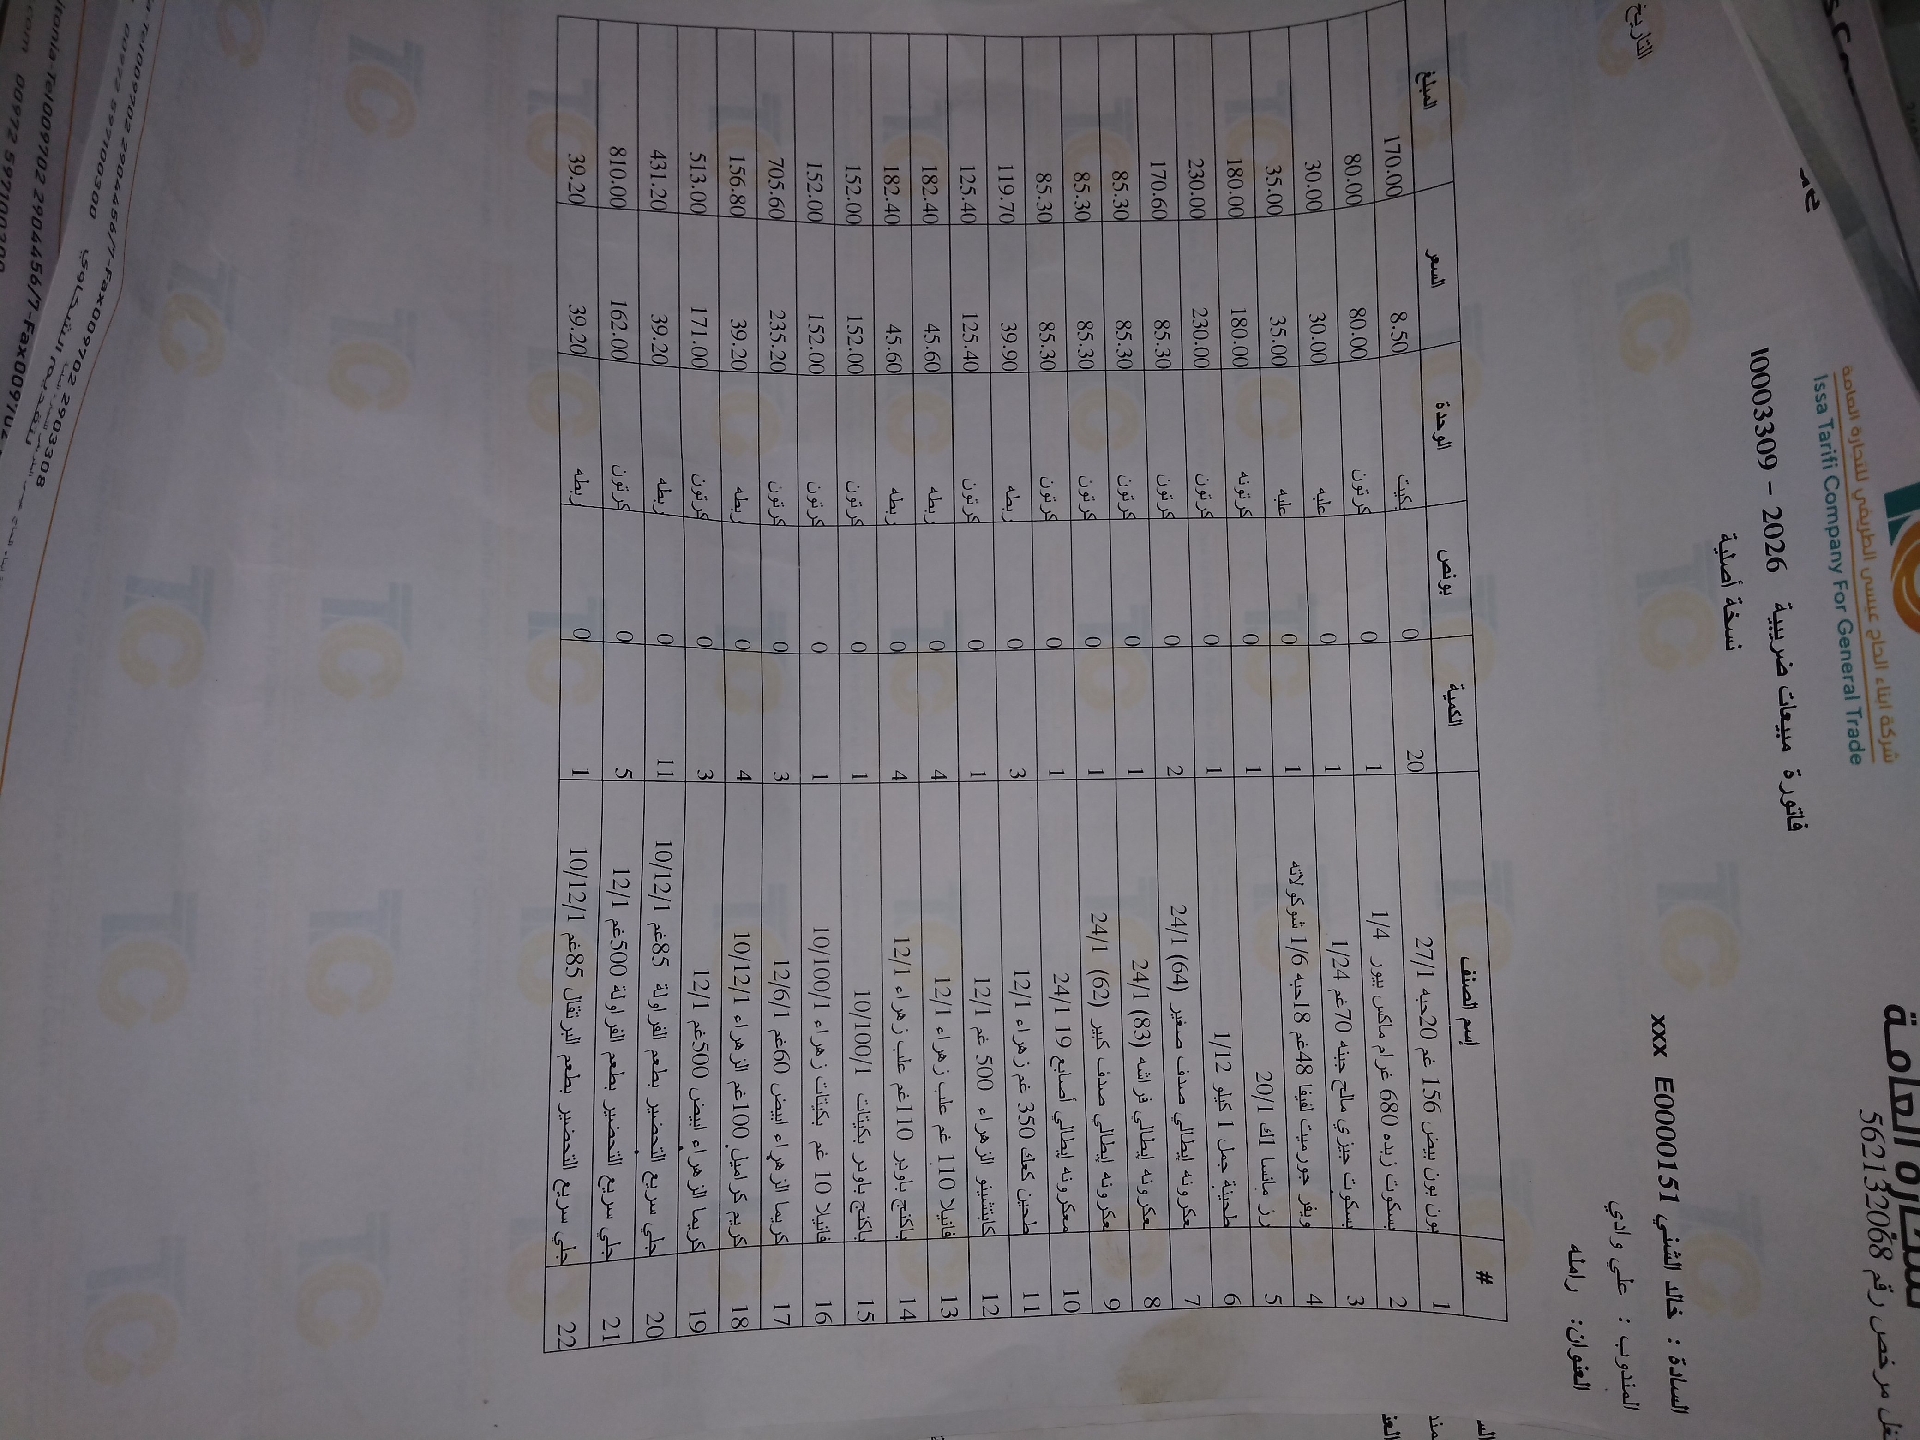 شركة ابناء الحاج عيسى الطريفي للتجارة العامة
Issa Tarifi Company For General Trade
مشتغل مرخص رقم 562132068
فاتورة مبيعات ضريبية 2026 - I0003309
نسخة أصلية
السادة : خالد الشني xxx E0000151
التاريخ
المندوب : علي وادي
العنوان: رامله
# إسم الصنف الكمية بونص الوحدة السعر المبلغ
1 بون بون بيض 156 غم 20حبه 27/1 20 0 بكيت 8.50 170.00
2 بسكوت زبده 680 غرام ماكس بيور 1/4 1 0 كرتون 80.00 80.00
3 بسكوت جيزي مالح جبنه 70غم 1/24 1 0 علبه 30.00 30.00
4 ويفر جورميت لفيفا 48غم 18حبه 1/6 شوكولاته 1 0 علبه 35.00 35.00
5 رز مانسا 1ك 20/1 1 0 كرتونه 180.00 180.00
6 طحينة جمل 1 كيلو 1/12 1 0 كرتون 230.00 230.00
7 معكرونه إيطالي صدف صغير (64) 24/1 2 0 كرتون 85.30 170.60
8 معكرونه إيطالي فراشه (83) 24/1 1 0 كرتون 85.30 85.30
9 معكرونه إيطالي صدف كبير (62) 24/1 1 0 كرتون 85.30 85.30
10 معكرونه إيطالي أصابع 19 24/1 1 0 كرتون 85.30 85.30
11 طحين كعك 350 غم زهراء 12/1 3 0 ربطه 39.90 119.70
12 كابتشينو الزهراء 500 غم 12/1 1 0 كرتون 125.40 125.40
13 فانيلا 110 غم علب زهراء 12/1 4 0 ربطه 45.60 182.40
14 باكنج باودر 110غم علب زهراء 12/1 4 0 ربطه 45.60 182.40
15 باكنج باودر بكيتات 10/100/1 1 0 كرتون 152.00 152.00
16 فانيلا 10 غم بكيتات زهراء 10/100/1 1 0 كرتون 152.00 152.00
17 كريما الزهراء ابيض 60غم 12/6/1 3 0 كرتون 235.20 705.60
18 كريم كراميل 100غم الزهراء 10/12/1 4 0 ربطه 39.20 156.80
19 كريما الزهراء ابيض 500غم 12/1 3 0 كرتون 171.00 513.00
20 جلي سريع التحضير بطعم الفراولة 85غم 10/12/1 11 0 ربطه 39.20 431.20
21 جلي سريع التحضير بطعم الفراولة 500غم 12/1 5 0 كرتون 162.00 810.00
22 جلي سريع التحضير بطعم البرتقال 85غم 10/12/1 1 0 ربطه 39.20 39.20